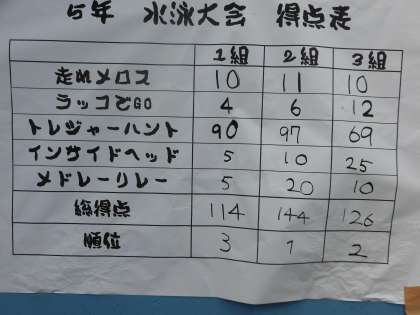 5年 水泳大会 得点表
1組 2組 3組
走れメロス 10 11 10
ラッコでGO 4 6 12
トレジャーハント 90 97 69
インサイドヘッド 5 10 25
メドレーリレー 5 20 10
総得点 114 144 126
順位 3 1 2